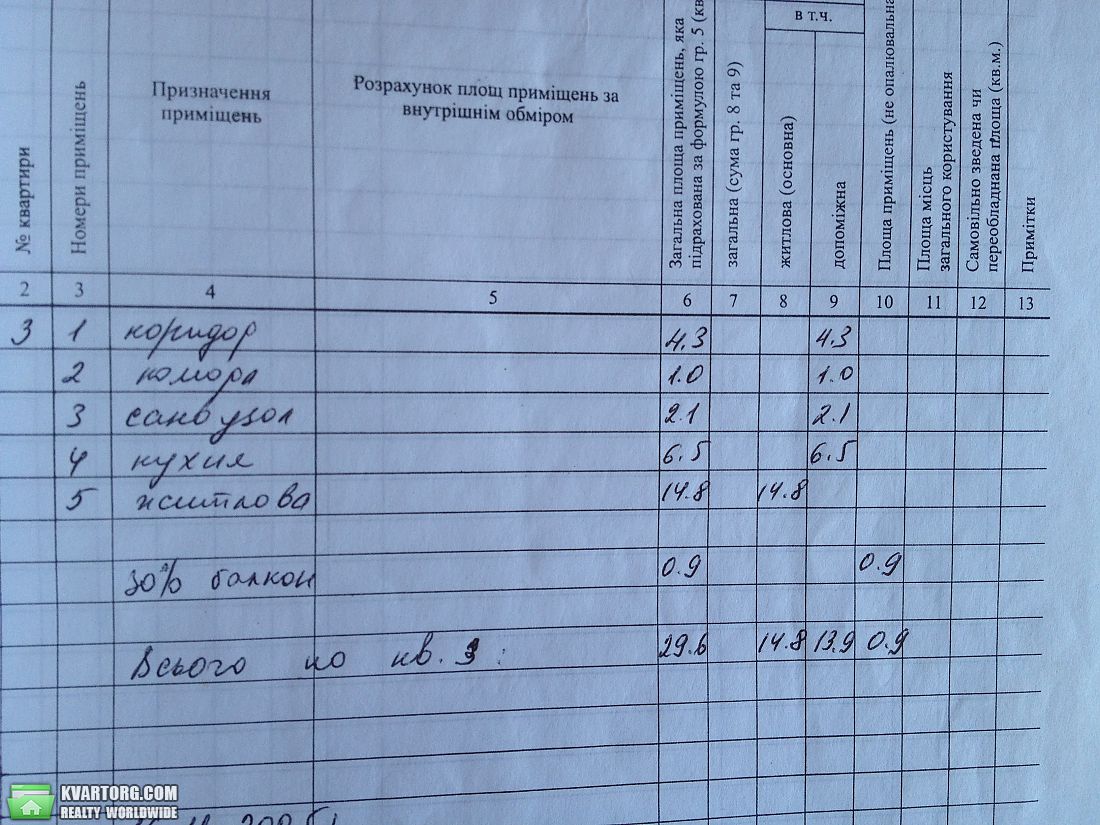 № квартири
Номери приміщень
Призначення
приміщень
Розрахунок площ приміщень за
внутрішнім обміром
Загальна площа приміщень, яка
підрахована за формулою гр. 5 (кв
загальна (сума гр. 8 та 9)
в т.ч.
житлова (основна)
допоміжна
Площа приміщень (не опалювальна
Площа місць
загального користування
Самовільно зведена чи
переобладнана площа (кв.м.)
Примітки
2 3 4 5 6 7 8 9 10 11 12 13
3 1 коридор 4.3 4.3
2 комора 1.0 1.0
3 сановузол 2.1 2.1
4 кухня 6.5 6.5
5 житлова 14.8 14.8
30% балкон 0.9 0.9
Всього по кв. 3: 29.6 14.8 13.9 0.9
KVARTORG.COM
REALTY WORLDWIDE